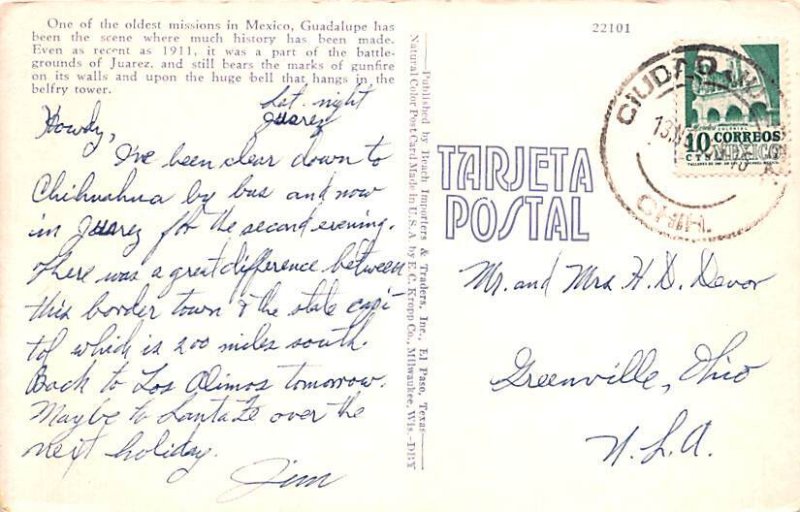 One of the oldest missions in Mexico, Guadalupe has
been the scene where much history has been made.
Even as recent as 1911, it was a part of the battle-
grounds of Juarez, and still bears the marks of gunfire
on its walls and upon the huge bell that hangs in the
belfry tower.
Sat. night
Juarez
Howdy,
I've been clear down to
Chihuahua by bus and now
in Juarez for the second evening.
There was a great difference between
this border town & the state capi-
tol which is 200 miles south.
Back to Los Alimos tomorrow.
Maybe to Santa Fe over the
next holiday.
Jim
Published by Beach Importers & Traders, Inc., El Paso, Texas
Natural Color Post Card Made in U.S.A. by E.C. Kropp Co., Milwaukee, Wis.-DBY
22101
TARJETA
POSTAL
CIUDAD
CHIH.
COLONIAL
10 CORREOS
CTS MEXICO
Mr. and Mrs H. D. Devor
Greenville, Ohio
U.S.A.